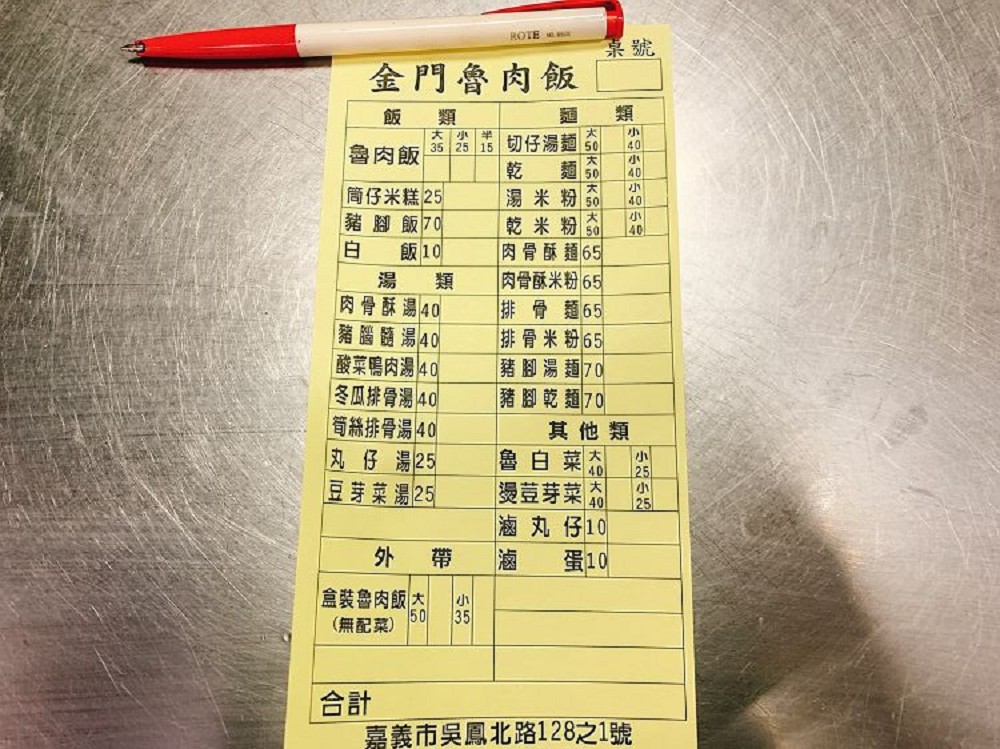 ROTE
桌號
金門魯肉飯
飯類
魯肉飯 大35 小25 半15
筒仔米糕 25
豬腳飯 70
白飯 10
湯類
肉骨酥湯 40
豬腦髓湯 40
酸菜鴨肉湯 40
冬瓜排骨湯 40
筍絲排骨湯 40
丸仔湯 25
豆芽菜湯 25
外帶
盒裝魯肉飯 大50 小35
(無配菜)
麵類
切仔湯麵 大50 小40
乾麵 大50 小40
湯米粉 大50 小40
乾米粉 大50 小40
肉骨酥麵 65
肉骨酥米粉 65
排骨麵 65
排骨米粉 65
豬腳湯麵 70
豬腳乾麵 70
其他類
魯白菜 大40 小25
燙荳芽菜 大40 小25
滷丸仔 10
滷蛋 10
合計
嘉義市吳鳳北路128之1號